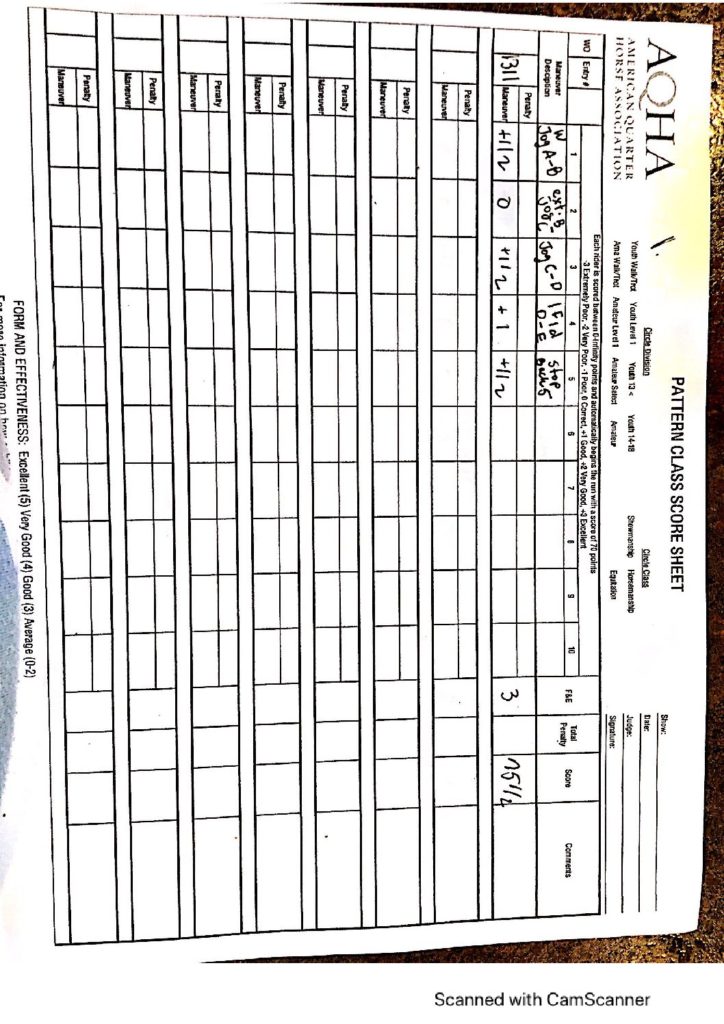 AQHA
AMERICAN QUARTER
HORSE ASSOCIATION
1.
PATTERN CLASS SCORE SHEET
Circle Division
Circle Class
Youth Walk/Trot Youth Level 1 Youth 13 < Youth 14-18
Showmanship Horsemanship
Ama Walk/Trot Amateur Level 1 Amateur Select Amateur
Equitation
Show:
Date:
Judge:
Signature:
Each rider is scored between 0-Infinity points and automatically begins the run with a score of 70 points
-3 Extremely Poor, -2 Very Poor, -1 Poor, 0 Correct, +1 Good, +2 Very Good, +3 Excellent
WO Entry # 1 2 3 4 5 6 7 8 9 10 F&E Total Penalty Score Comments
Maneuver Desciption W Jog A-B ext. B Jog C- Jog C-D D-E stop
Penalty
1311 Maneuver +1/2 0 +1/2 +1 +1/2 3 75 1/2
Penalty
Maneuver
Penalty
Maneuver
Penalty
Maneuver
Penalty
Maneuver
Penalty
Maneuver
Penalty
Maneuver
Penalty
Maneuver
FORM AND EFFECTIVENESS: Excellent (5) Very Good (4) Good (3) Average (0-2)
For more information on how
Scanned with CamScanner